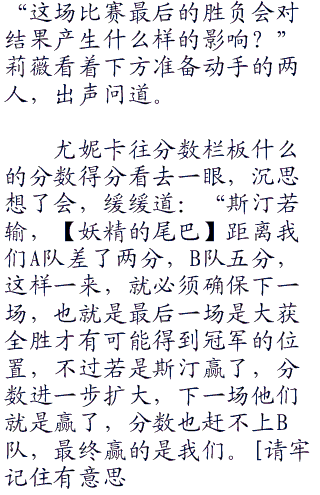 “这场比赛最后的胜负会对
结果产生什么样的影响？”
莉薇看着下方准备动手的两
人，出声问道。
尤妮卡往分数栏板什么
的分数得分看去一眼，沉思
想了会，缓缓道：“斯汀若
输，【妖精的尾巴】距离我
们A队差了两分，B队五分，
这样一来，就必须确保下一
场，也就是最后一场是大获
全胜才有可能得到冠军的位
置，不过若是斯汀赢了，分
数进一步扩大，下一场他们
就是赢了，分数也赶不上B
队，最终赢的是我们。[请牢
记住有意思